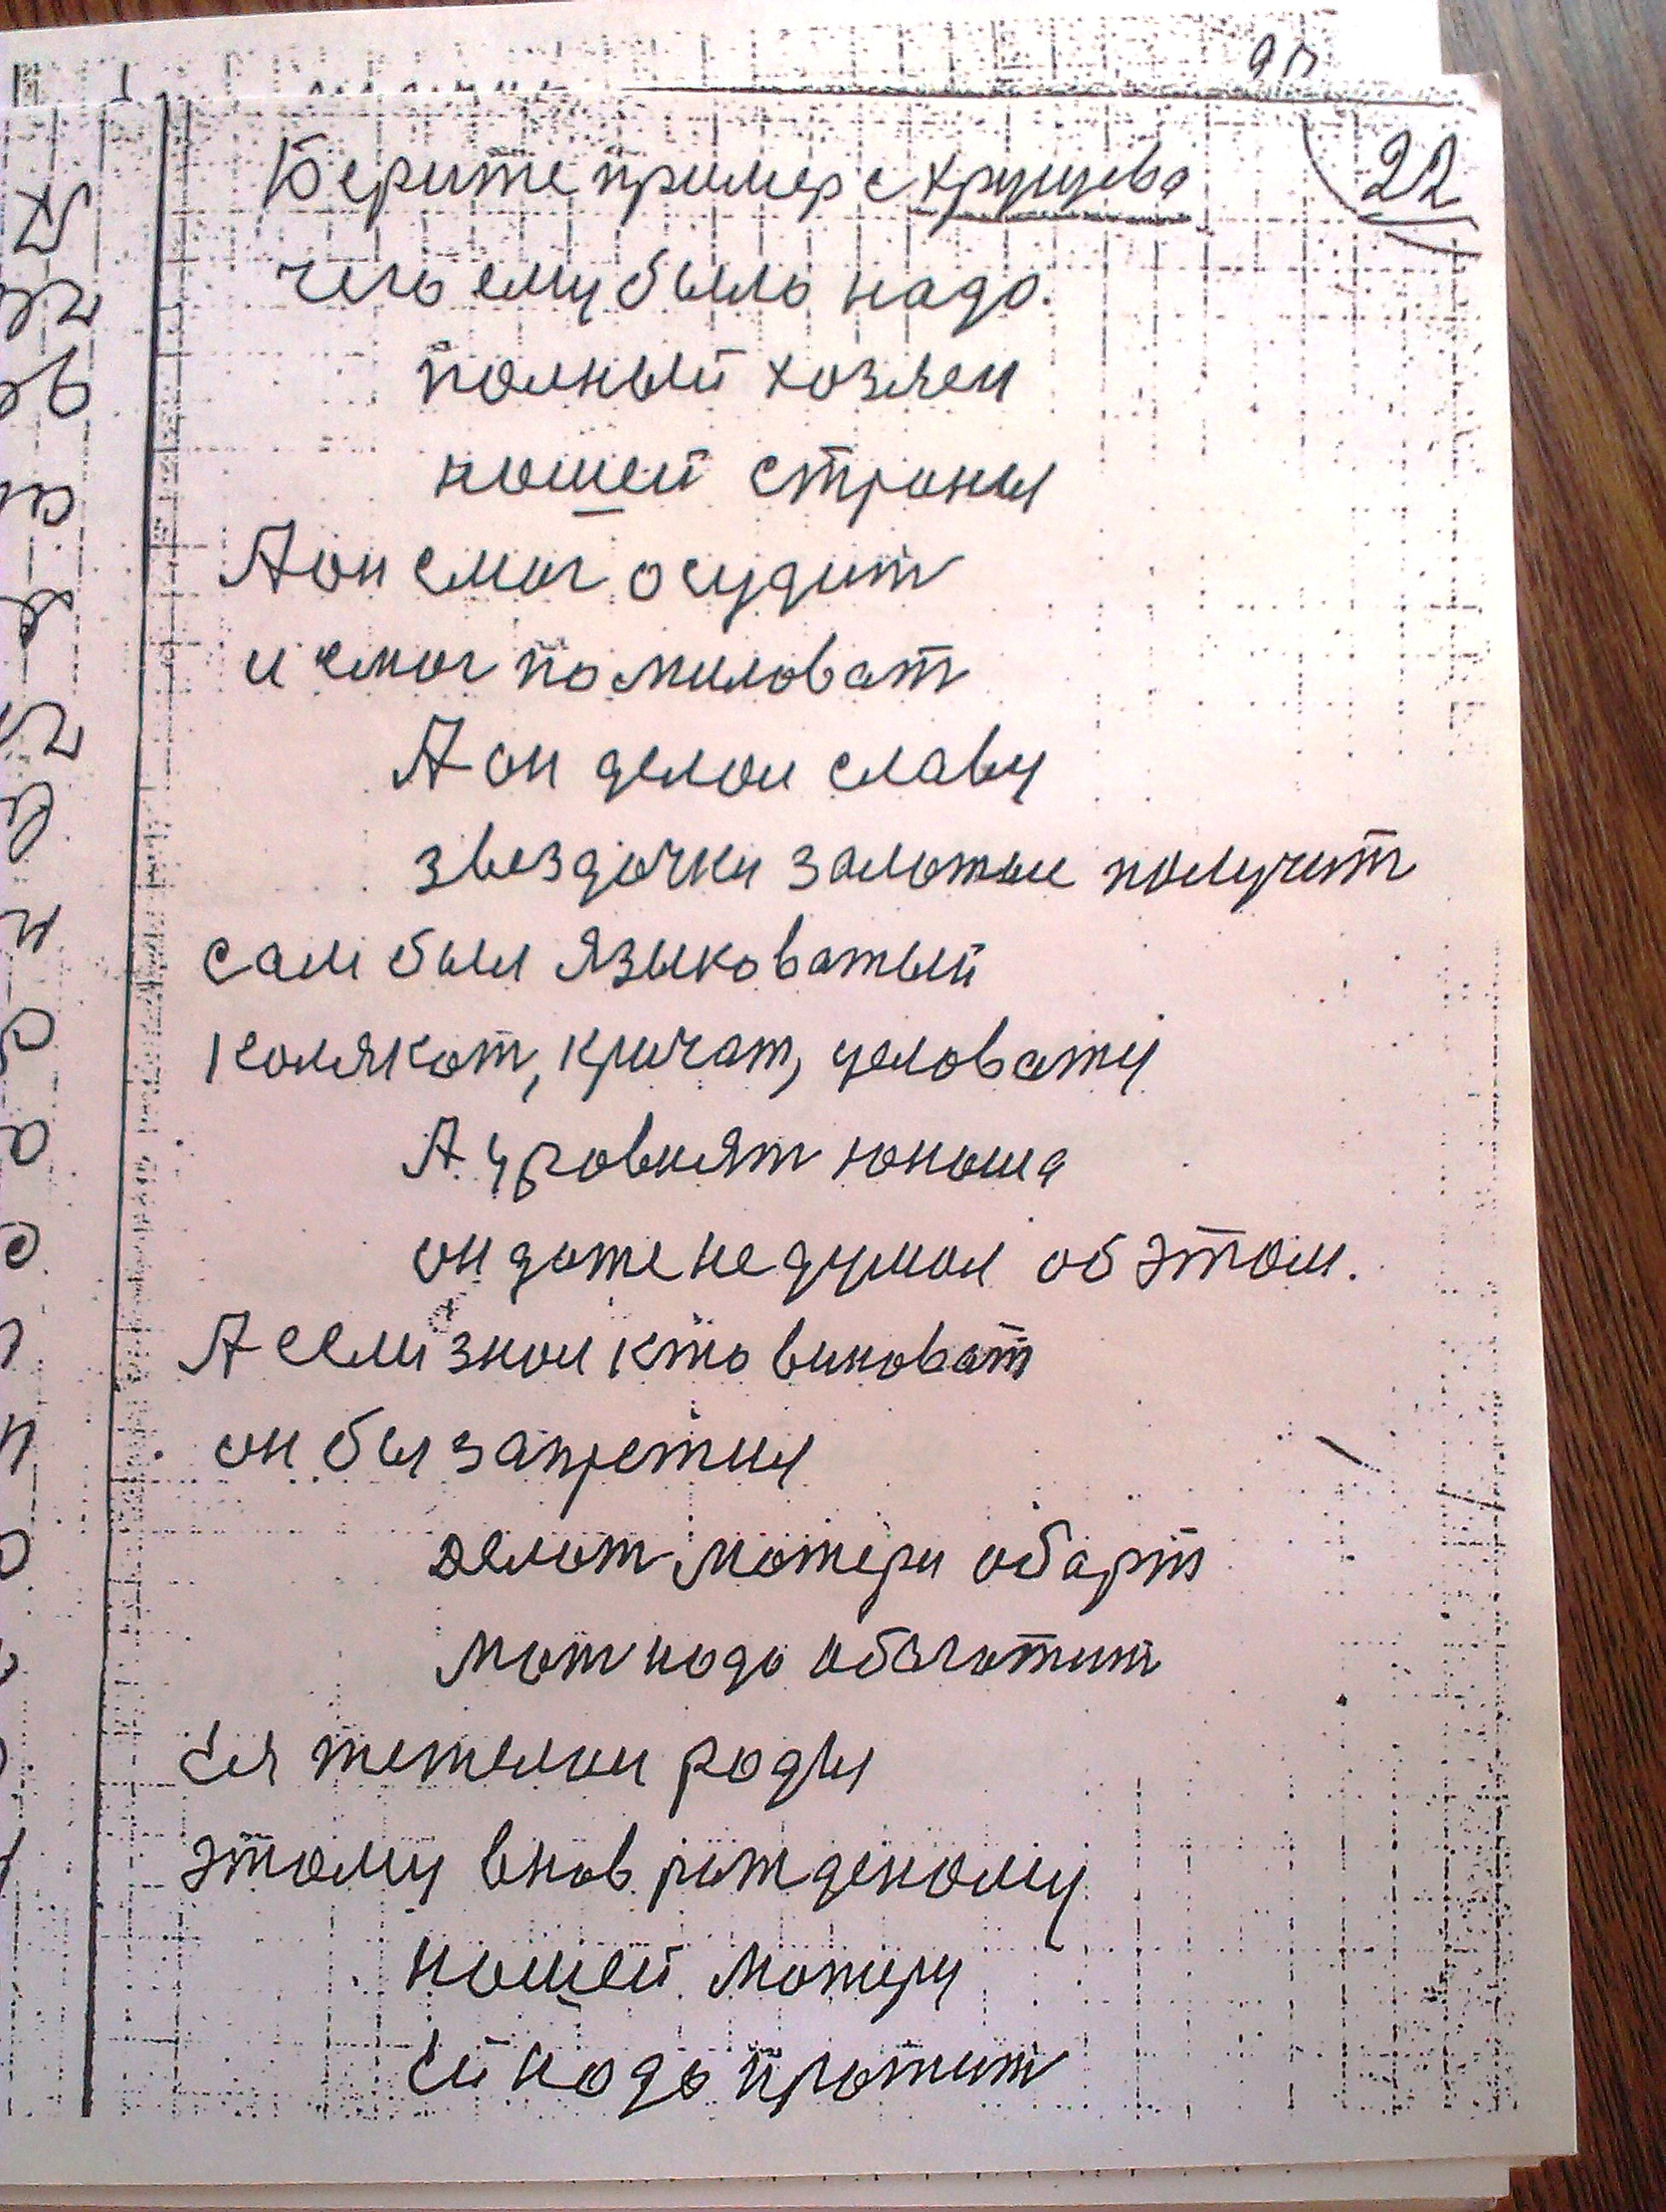 22
Берите пример с хрущева
чего ему было надо.
полный хозяен
нашей страны
А он смог осудит
и смог помиловат
А он делал славу
звездочки залотые получит
сам был языковатый
калякат, кричат, целовату
А уговият юноша
он даже не думал об этом.
А если знал кто виноват
он бы запретил
делат матери абарт
мат надо обагатит
Ея тетелои роды
этому внов ражденому
нашей матеру
ей надо платит